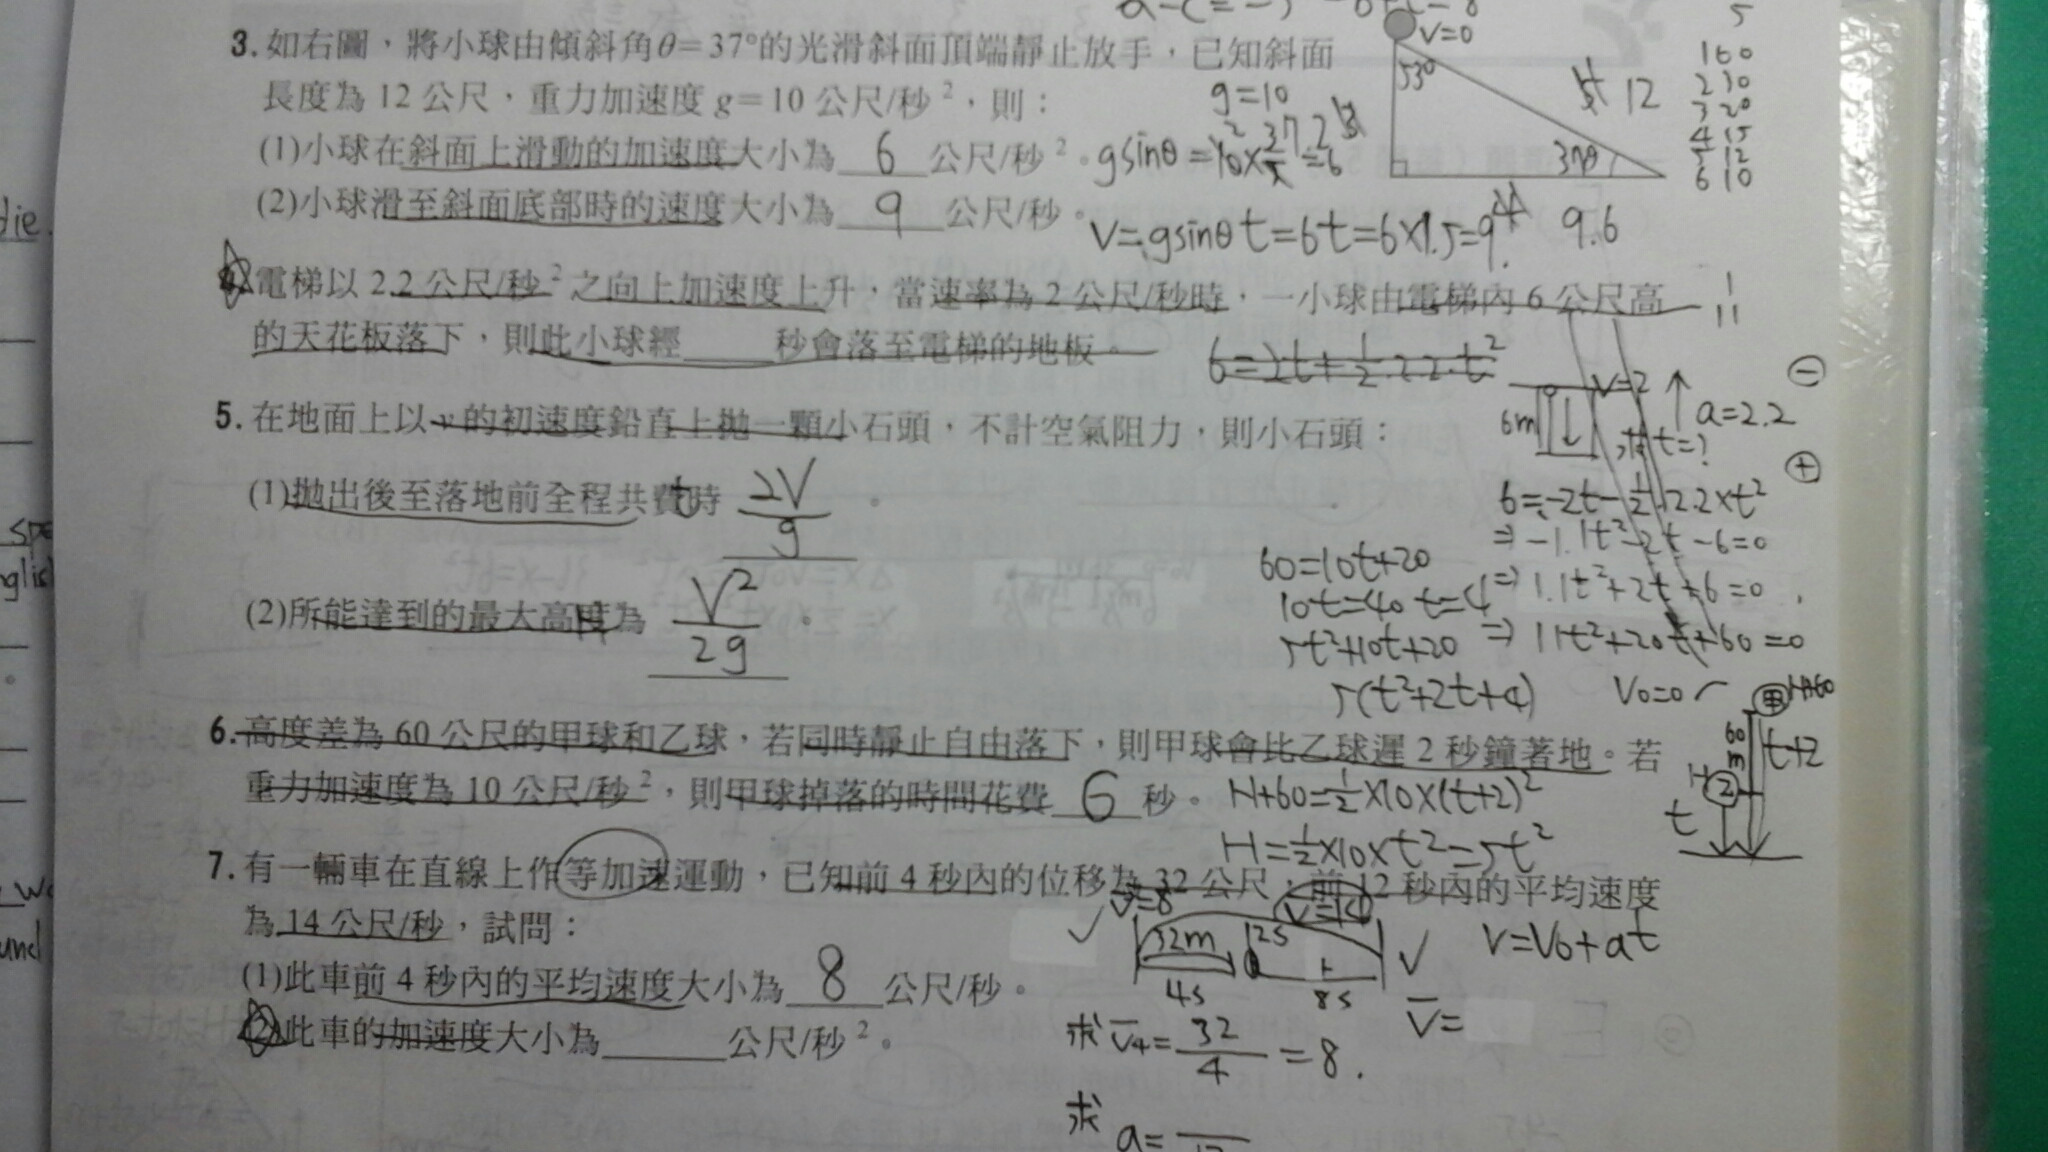 3. 如右圖，將小球由傾斜角θ=37°的光滑斜面頂端靜止放手，已知斜面
長度為 12 公尺，重力加速度 g=10 公尺/秒²，則：
(1)小球在斜面上滑動的加速度大小為 6 公尺/秒²。
(2)小球滑至斜面底部時的速度大小為 9 公尺/秒。
g=10
V=0
53°
12
37°
9.6
V=gsinθt=6t=6×1.5=9
5
160
2 30
3 20
4 15
5 12
6 10
電梯以 2.2 公尺/秒² 之向上加速度上升，當速率為 2 公尺/秒時，一小球由電梯內 6 公尺高
的天花板落下，則此小球經 秒會落至電梯的地板。
6=2t+½·2.2·t²
V=2
a=2.2
6m
求t=?
6=-2t-½·2.2×t²
⇒-1.1t²-2t-6=0
⇒1.1t²+2t+6=0
⇒11t²+20t+60=0
5. 在地面上以 v 的初速度鉛直上拋一顆小石頭，不計空氣阻力，則小石頭：
(1)拋出後至落地前全程共費時 t 2V/g。
(2)所能達到的最大高度為 H V²/2g。
60=10t+20
10t=40 t=4
5t²+10t+20
5(t²+2t+4)
V0=0
6. 高度差為 60 公尺的甲球和乙球，若同時靜止自由落下，則甲球會比乙球遲 2 秒鐘著地。若
重力加速度為 10 公尺/秒²，則甲球掉落的時間花費 6 秒。
H+60=½×10×(t+2)²
H=½×10×t²=5t²
甲
60m
t+2
H
乙
t
7. 有一輛車在直線上作等加速運動，已知前 4 秒內的位移為 32 公尺，前 12 秒內的平均速度
為 14 公尺/秒，試問：
(1)此車前 4 秒內的平均速度大小為 8 公尺/秒。
(2)此車的加速度大小為 公尺/秒²。
V=8
V=14
32m
12s
4s
8s
V=V0+at
V̄=
求 V̄4=32/4=8.
求 a=